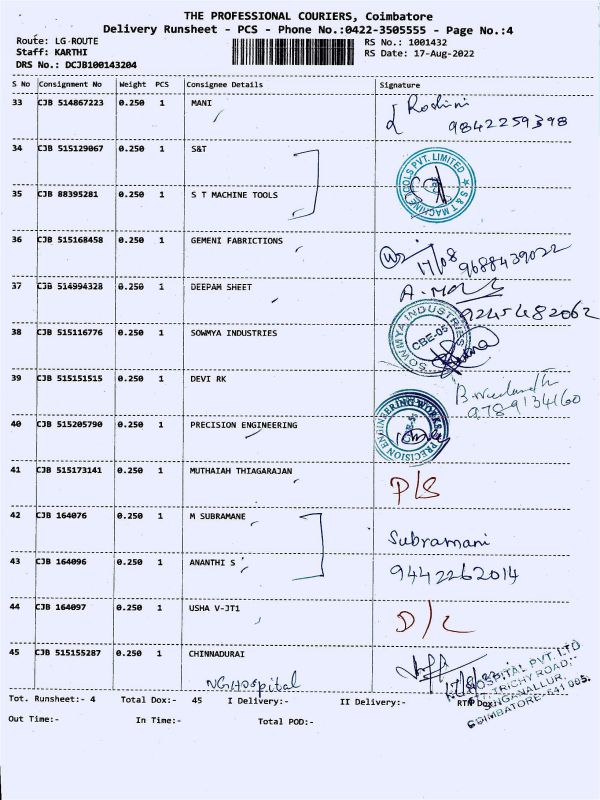 THE PROFESSIONAL COURIERS, Coimbatore
Delivery Runsheet - PCS - Phone No.:0422-3505555 - Page No.:4
Route: LG-ROUTE RS No.: 1001432
Staff: KARTHI RS Date: 17-Aug-2022
DRS No.: DCJB100143204
S No Consignment No Weight PCS Consignee Details Signature
33 CJB 514867223 0.250 1 MANI Roshini
9842259398
34 CJB 515129067 0.250 1 S&T
S & T MACHINE TOOLS PVT. LIMITED
35 CJB 88395281 0.250 1 S T MACHINE TOOLS
36 CJB 515168458 0.250 1 GEMENI FABRICTIONS
17/08 9688439022
37 CJB 514994328 0.250 1 DEEPAM SHEET
9245482062
38 CJB 515116776 0.250 1 SOWMYA INDUSTRIES
SOWMYA INDUSTRIES CBE-05
39 CJB 515151515 0.250 1 DEVI RK
9789134160
40 CJB 515205790 0.250 1 PRECISION ENGINEERING
PRECISION ENGINEERING WORKS
41 CJB 515173141 0.250 1 MUTHAIAH THIAGARAJAN P/S
42 CJB 164076 0.250 1 M SUBRAMANE
Subramani
43 CJB 164096 0.250 1 ANANTHI S 9442262014
44 CJB 164097 0.250 1 USHA V-JT1 D/L
45 CJB 515155287 0.250 1 CHINNADURAI
NG Hospital
HOSPITAL PVT. LTD
TRICHY ROAD,
SINGANALLUR,
COIMBATORE-641 005.
Tot. Runsheet:- 4 Total Dox:- 45 I Delivery:- II Delivery:- RTN Dox:-
Out Time:- In Time:- Total POD:-